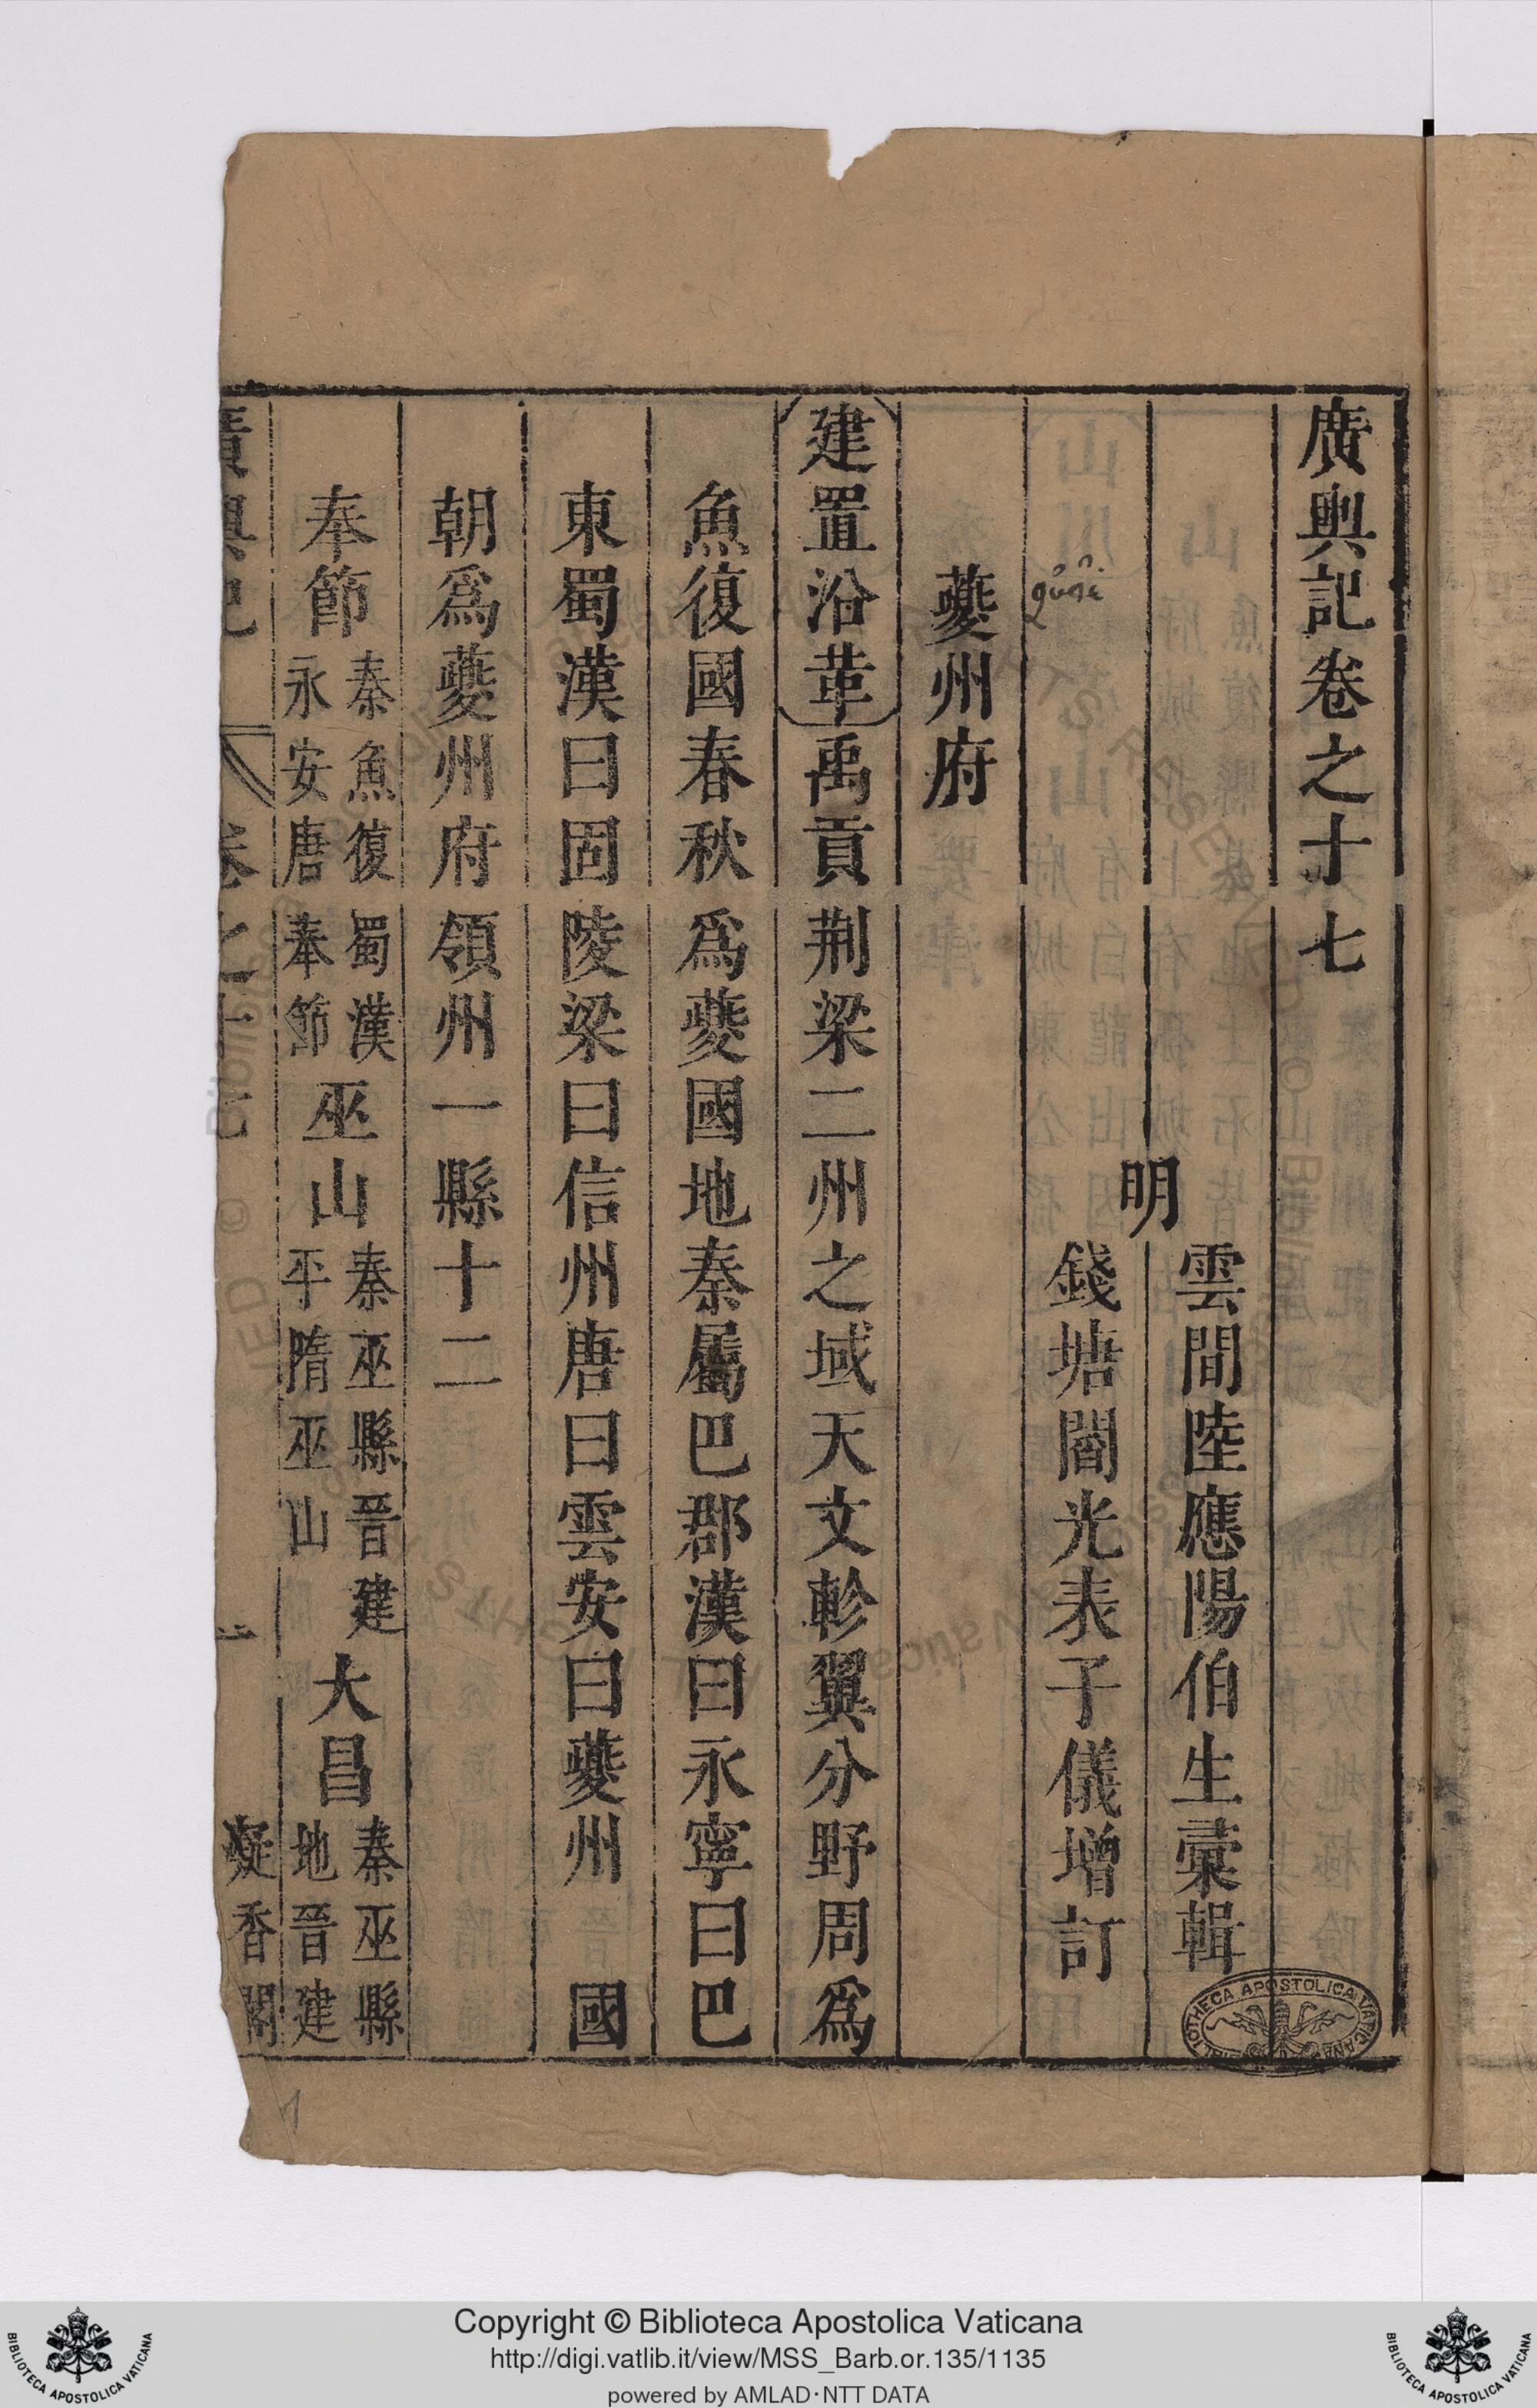 廣輿記卷之十七
明
雲間陸應陽伯生彙輯
錢塘閻光表子儀增訂
夔州府
建置沿革禹貢荆梁二州之域天文軫翼分野周爲
魚復國春秋爲夔國地秦屬巴郡漢曰永寧曰巴
東蜀漢曰固陵梁曰信州唐曰雲安曰夔州 國
朝爲夔州府領州一縣十二
奉節秦魚復蜀漢永安唐奉節巫山秦巫縣晉建平隋巫山大昌秦巫縣地晉建
廣輿記 卷之十七 一 凝香閣
BIBLIOTHECA APOSTOLICA VATICANA
Copyright © Biblioteca Apostolica Vaticana
http://digi.vatlib.it/view/MSS_Barb.or.135/1135
powered by AMLAD·NTT DATA
BIBLIOTECA APOSTOLICA VATICANA
BIBLIOTECA APOSTOLICA VATICANA